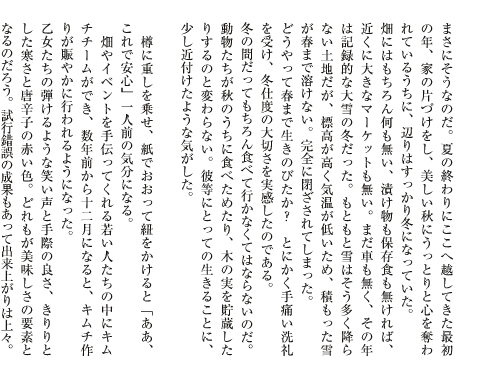 まさにそうなのだ。夏の終わりにここへ越してきた最初
の年、家の片づけをし、美しい秋にうっとりと心を奪わ
れているうちに、辺りはすっかり冬になっていた。
畑にはもちろん何も無い、漬け物も保存食も無ければ、
近くに大きなマーケットも無い。まだ車も無く、その年
は記録的な大雪の冬だった。もともと雪はそう多く降ら
ない土地だが、標高が高く気温が低いため、積もった雪
が春まで溶けない。完全に閉ざされてしまった。
どうやって春まで生きのびたか？　とにかく手痛い洗礼
を受け、冬仕度の大切さを実感したのである。
冬の間だってもちろん食べて行かなくてはならないのだ。
動物たちが秋のうちに食べためたり、木の実を貯蔵した
りするのと変わらない。彼等にとっての生きることに、
少し近付けたような気がした。
樽に重しを乗せ、紙でおおって紐をかけると「ああ、
これで安心」一人前の気分になる。
畑やイベントを手伝ってくれる若い人たちの中にキム
チチームができ、数年前から十二月になると、キムチ作
りが賑やかに行われるようになった。
乙女たちの弾けるような笑い声と手際の良さ、きりりと
した寒さと唐辛子の赤い色。どれもが美味しさの要素と
なるのだろう。試行錯誤の成果もあって出来上がりは上々。